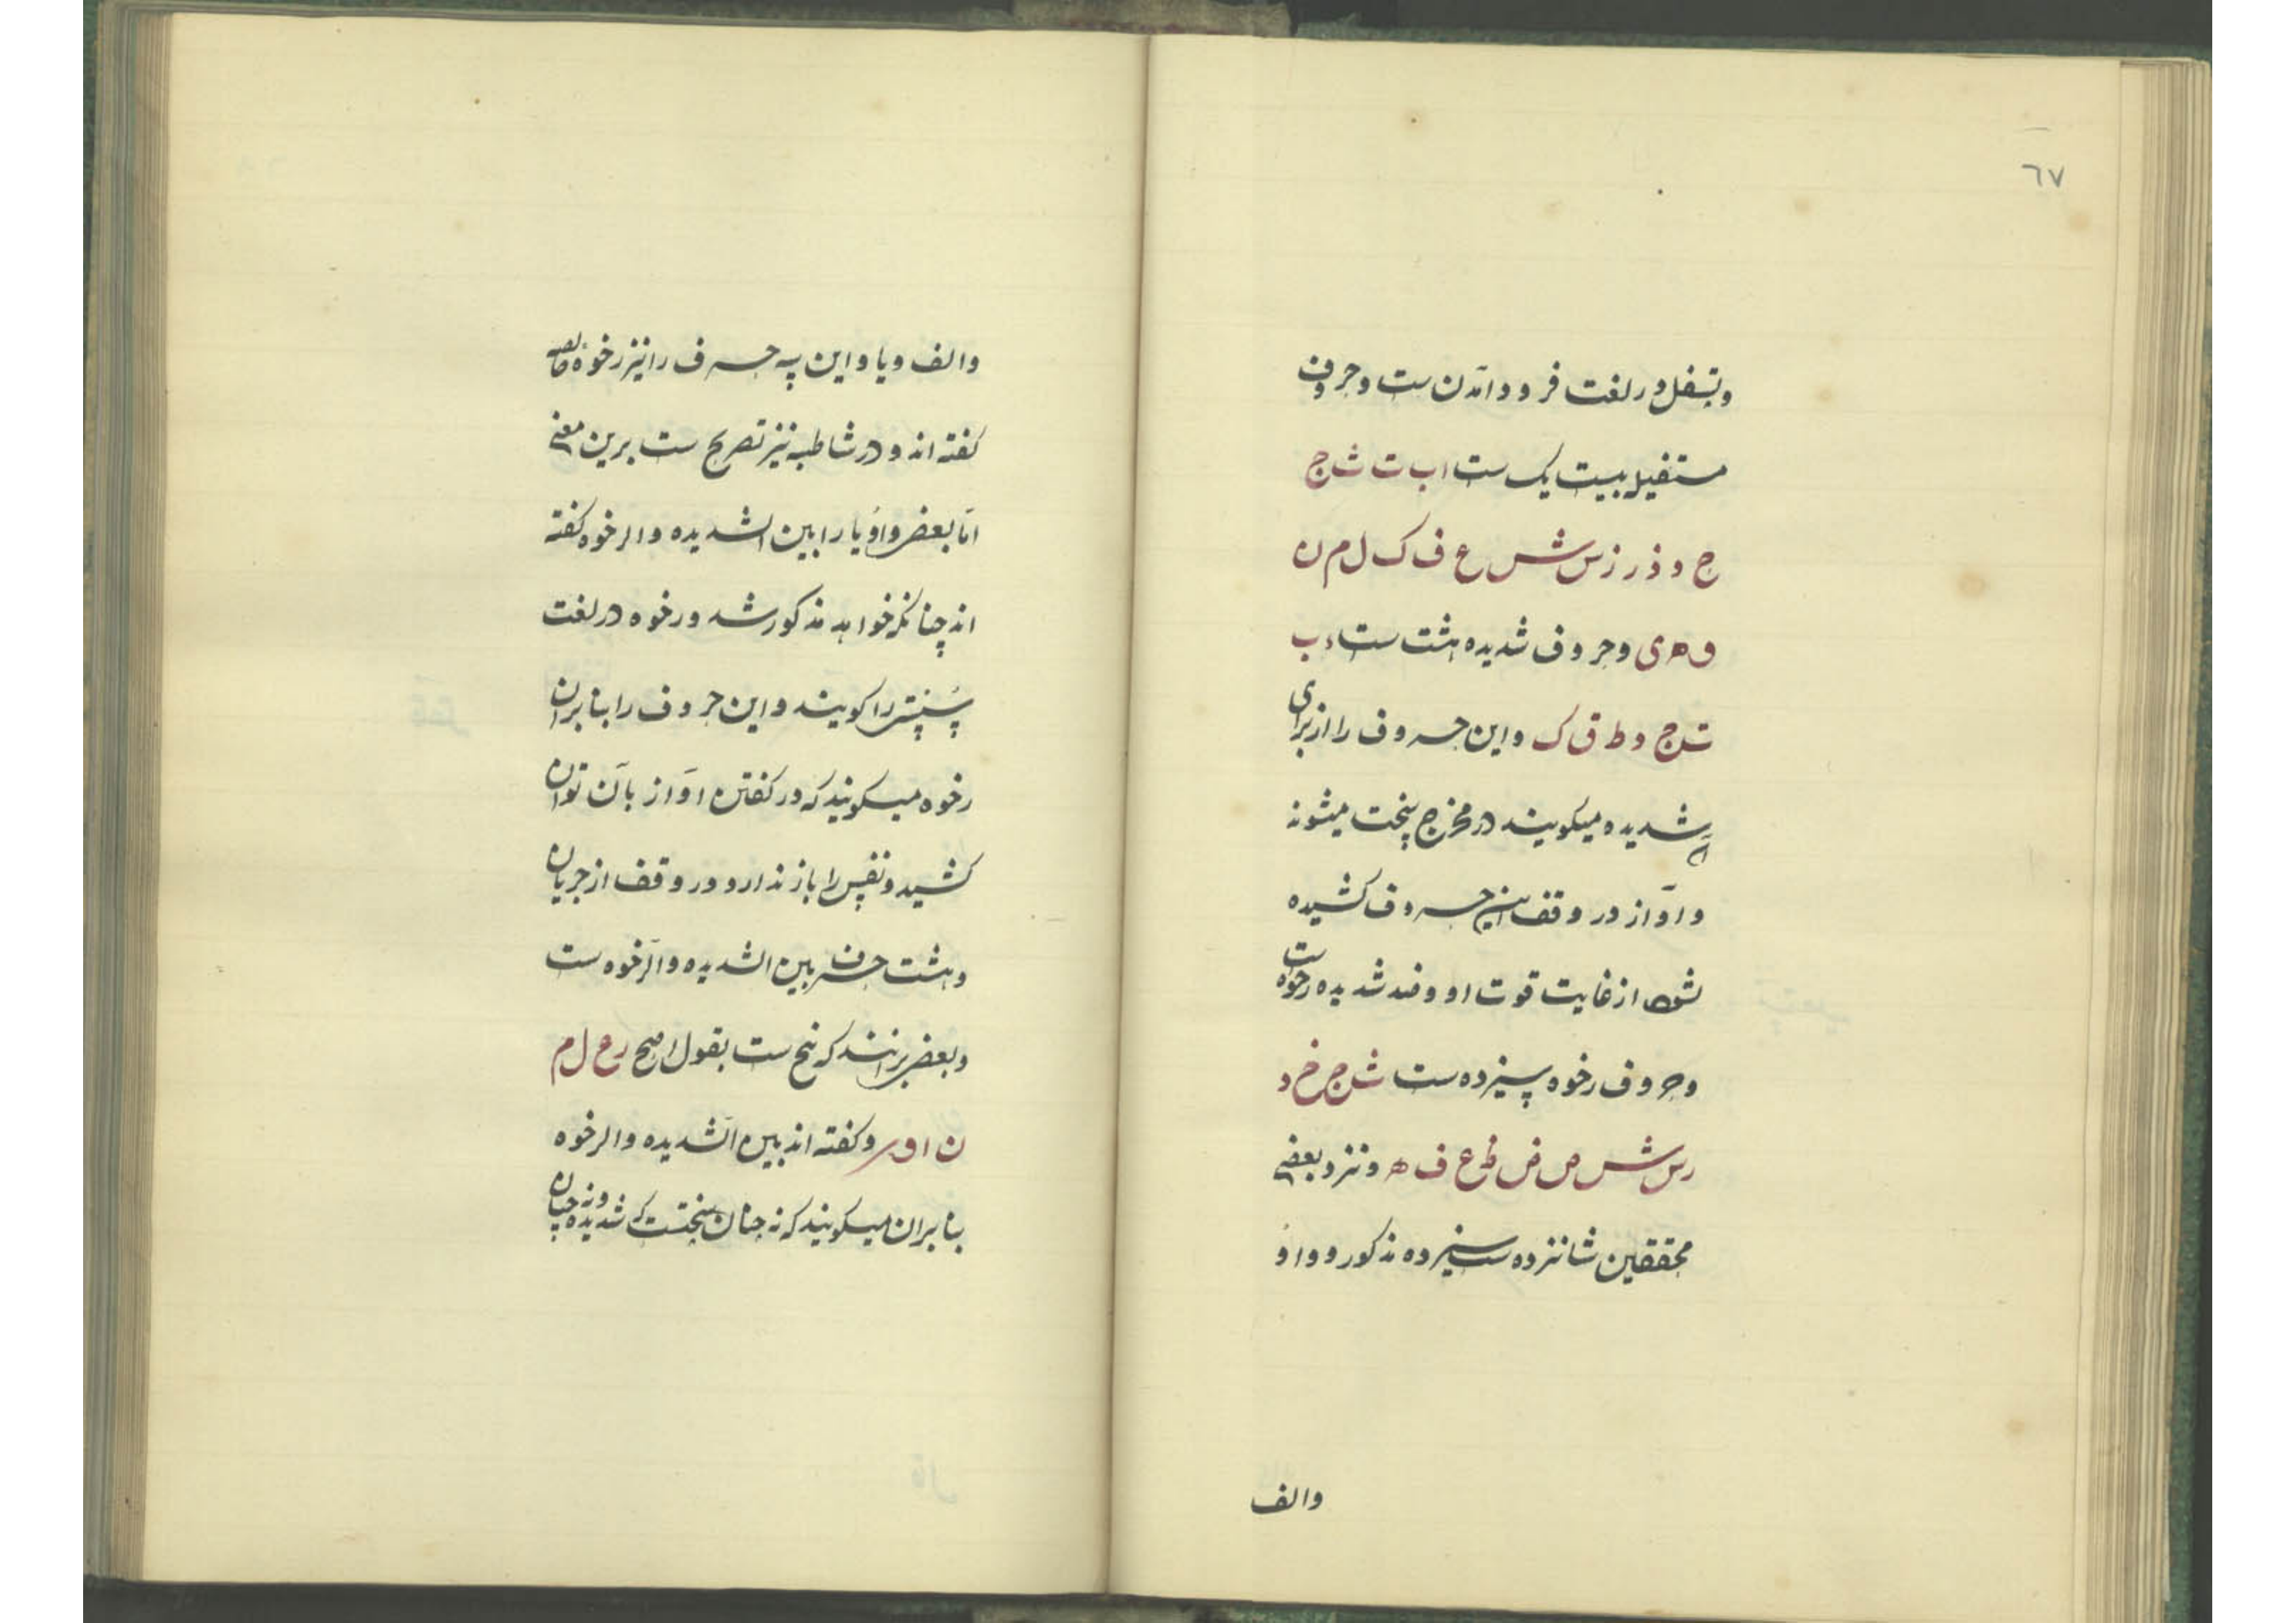 ٦٧
وتسفل در لغت فرود آمدن ست وحروف
مستفله بیست یک ست ا ب ت ث ج
ح د ذ ر ز س ش ع ف ک ل م ن
و ه ی وحروف شدیده هشت ست ء ب
ت ج د ط ق ک واین حروف را از برای
آن شدیده میکویند در مخرج سخت میشوند
وآواز در وقف این حروف کشیده
نشود از غایت قوت او وضد شدیده رخوه است
وحروف رخوه سیزده ست ث ح خ ذ
ز س ش ص ض ظ غ ف ه ونزد بعضی
محققین شانزده ست سیزده مذکور و واو
والف
والف ویا واین سه حرف را نیز رخوه
کفته اند ودر شاطبیه نیز تصریح ست برین معنی
اما بعضی واو یا را بین الشدیده والرخوه کفته
اند چنانکه خواهد مذکور شد ورخوه در لغت
سستی را کویند واین حروف را بنابران
رخوه میکویند که در کفتن آواز بآن توان
کشید ونفس را باز ندارد ودر وقف از جریان
وهشت حرف بین الشدیده والرخوه ست
وبعضی برانند که پنج ست بقول اصح ر ع ل م
ن ا و ی وکفته اند بین الشدیده والرخوه
بنابران میکویند که نه چنان سختست که شدیده ونه چنان